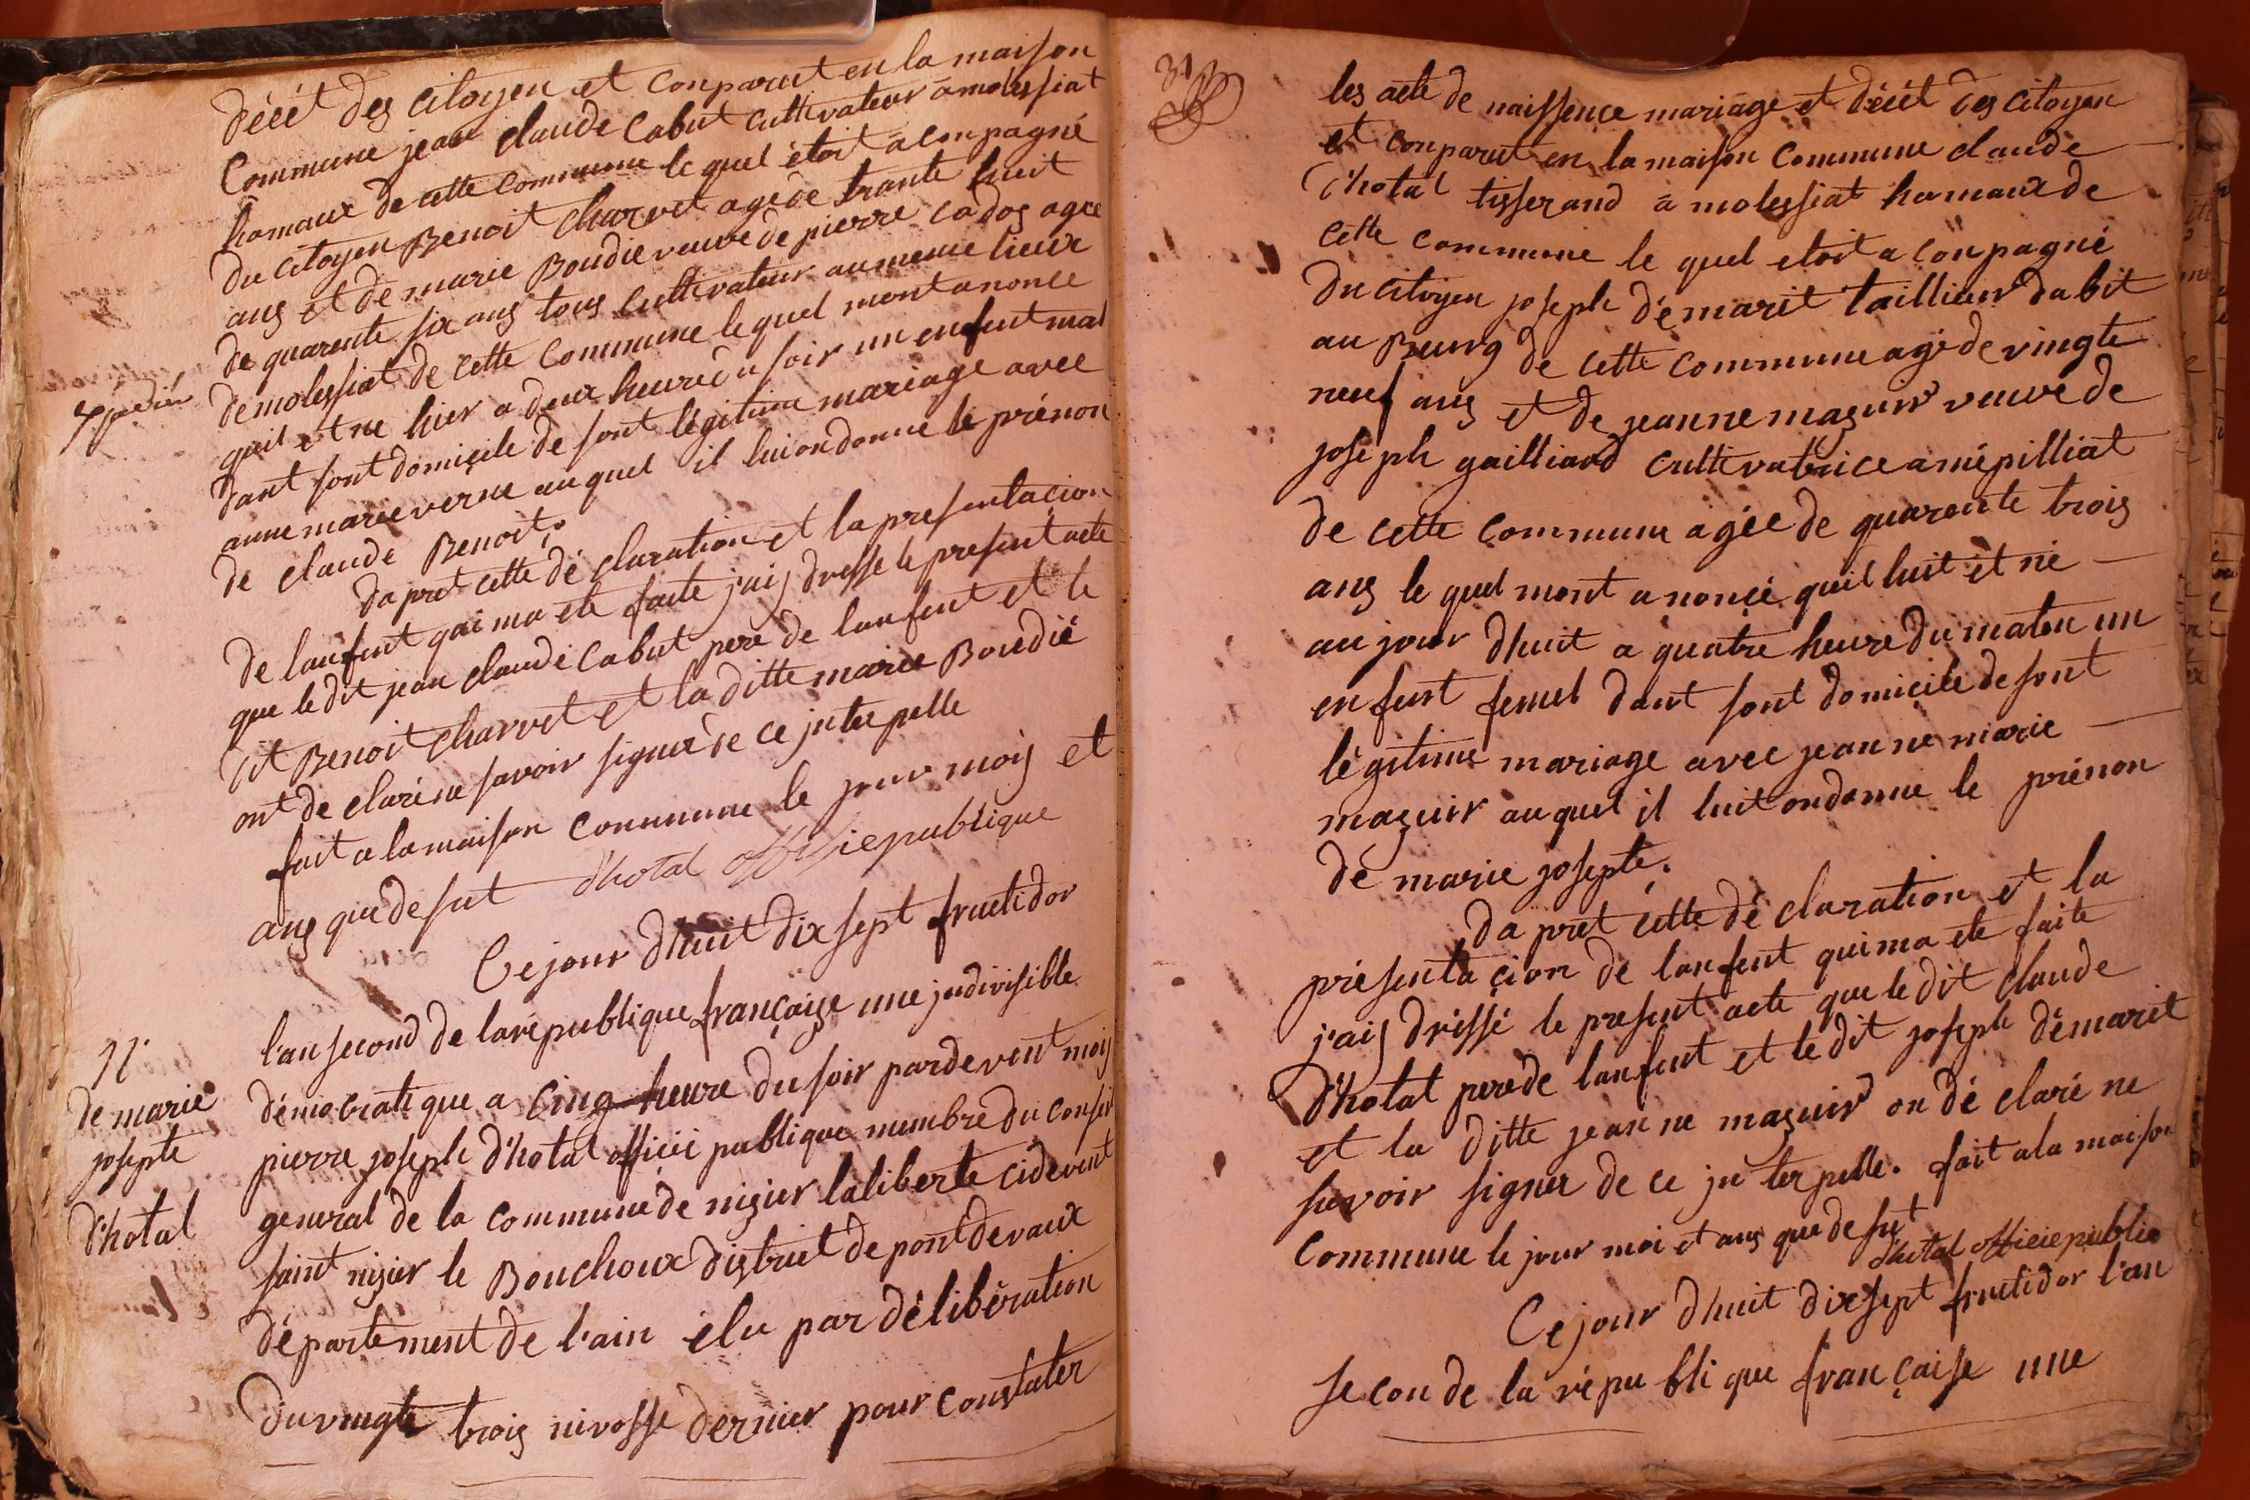 décét des citoyen et conparut en la maison
Commune jean claude Cabut cultivateur a molessiat
hamaux de cette commune le quel étoit a conpagné
du citoyen Benoit charvet agé de trante huit
ans et de marie Boudié veuve de pierre cados agee
de quarente six ans tous cultivateur au meme lieux
de molessiat de cette commune le quel mont anonce
quil ét ne hier a deux heure du soir un enfent mal
dant sont domiçile de sont légitime mariage avec
anne marie verne au quel il lui on donne le prénon
de claude Benoit.
da pret cette dé claration et la presentaçion
de lanfent qui ma ete faite j'aij dresse le present acte
que le dit jean claude Cabut pere de lanfent et le
dit Benoit charvet et la ditte marie Bouedié
ont de claré ne savoir signer de ce jnterpelle
fait a la maison commune le jour mois et
ans que desut d'hotal officie publique
Ce jour dhuit dix sept fructidor
l'an second de la république françaișe une jndivisible
démocratique a cinq heure du soir par devent moij
pierre joseph d'hotal officié publique membre du conseil
general de la commune de nizier la liberte cidevent
saint nizier le Bouchoux district de pont de vaux
département de l'ain elu par délibération
du vingte trois nivosse dernier pour constater
n.
de marie
josepte
d'hotal
31
les acte de naissence mariage et décét des citoyen
et conparut en la maison commune claude
d'hotal tisserand a molessiat hamaux de
cette commune le quel etoit a conpagné
du citoyen joseph démarit taillieur dabit
au Bourg de cette commune agé de vingte
neuf ans et de jeanne mazuir veuve de
joseph gailliard cultivatrice a mépilliat
de cette commune agée de quarente trois
ans le quel mont anoncé quil luit ét né
au jour dhuit a quatre heure du maten un
enfent femel dant sont domicile de sont
légitime mariage avec jeanne marie
mazuir au quel il luit on donne le prénon
de marie josepte.
da prét cette dé claration et la
présenta çion de lanfent qui ma ete faite
j'aij dréssé le present acte que le dit claude
d'hotal pere de lanfent et le dit joseph démarit
et la ditte jeanne mazuir on dé claré ne
savoir signer de ce jnterpelle. fait a la maison
commune le jour moi et ans que de sut
d'hotal officie publie
Ce jour dhuit dix sept fructidor l'an
second de la répu bli que françaișe une